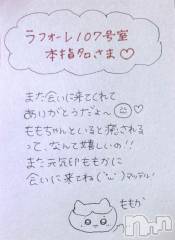 ラフォーレ107号室
本指名さま♡
また会いに来てくれて
ありがとうだよ〜
ももちゃんといると癒される
って、なんて嬉しいの!!
また元気印ももかに
会いに来てね('ω')マッテル!
ももか